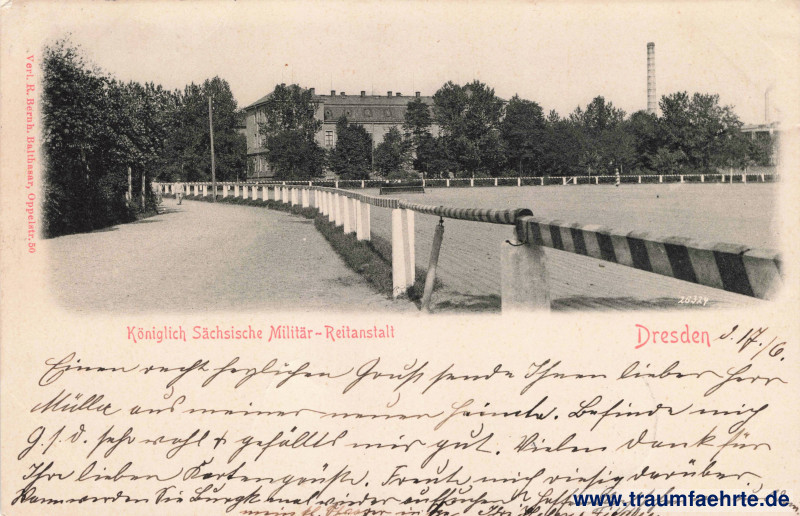 Verl. R. Bernh. Balthasar, Oppelstr. 50
28324
Königlich Sächsische Militär-Reitanstalt
Dresden d. 17./6.
Einen recht herzlichen Gruß sende Ihnen lieber Herr
Müller aus meiner neuen Heimat. Befinde mich
G. s. d. sehr wohl & gefällts mir gut. Vielen Dank für
Ihre lieben Kartengrüße. Freute mich riesig darüber.
Wann werden Sie wieder aufsuchen &
www.traumfaehrte.de